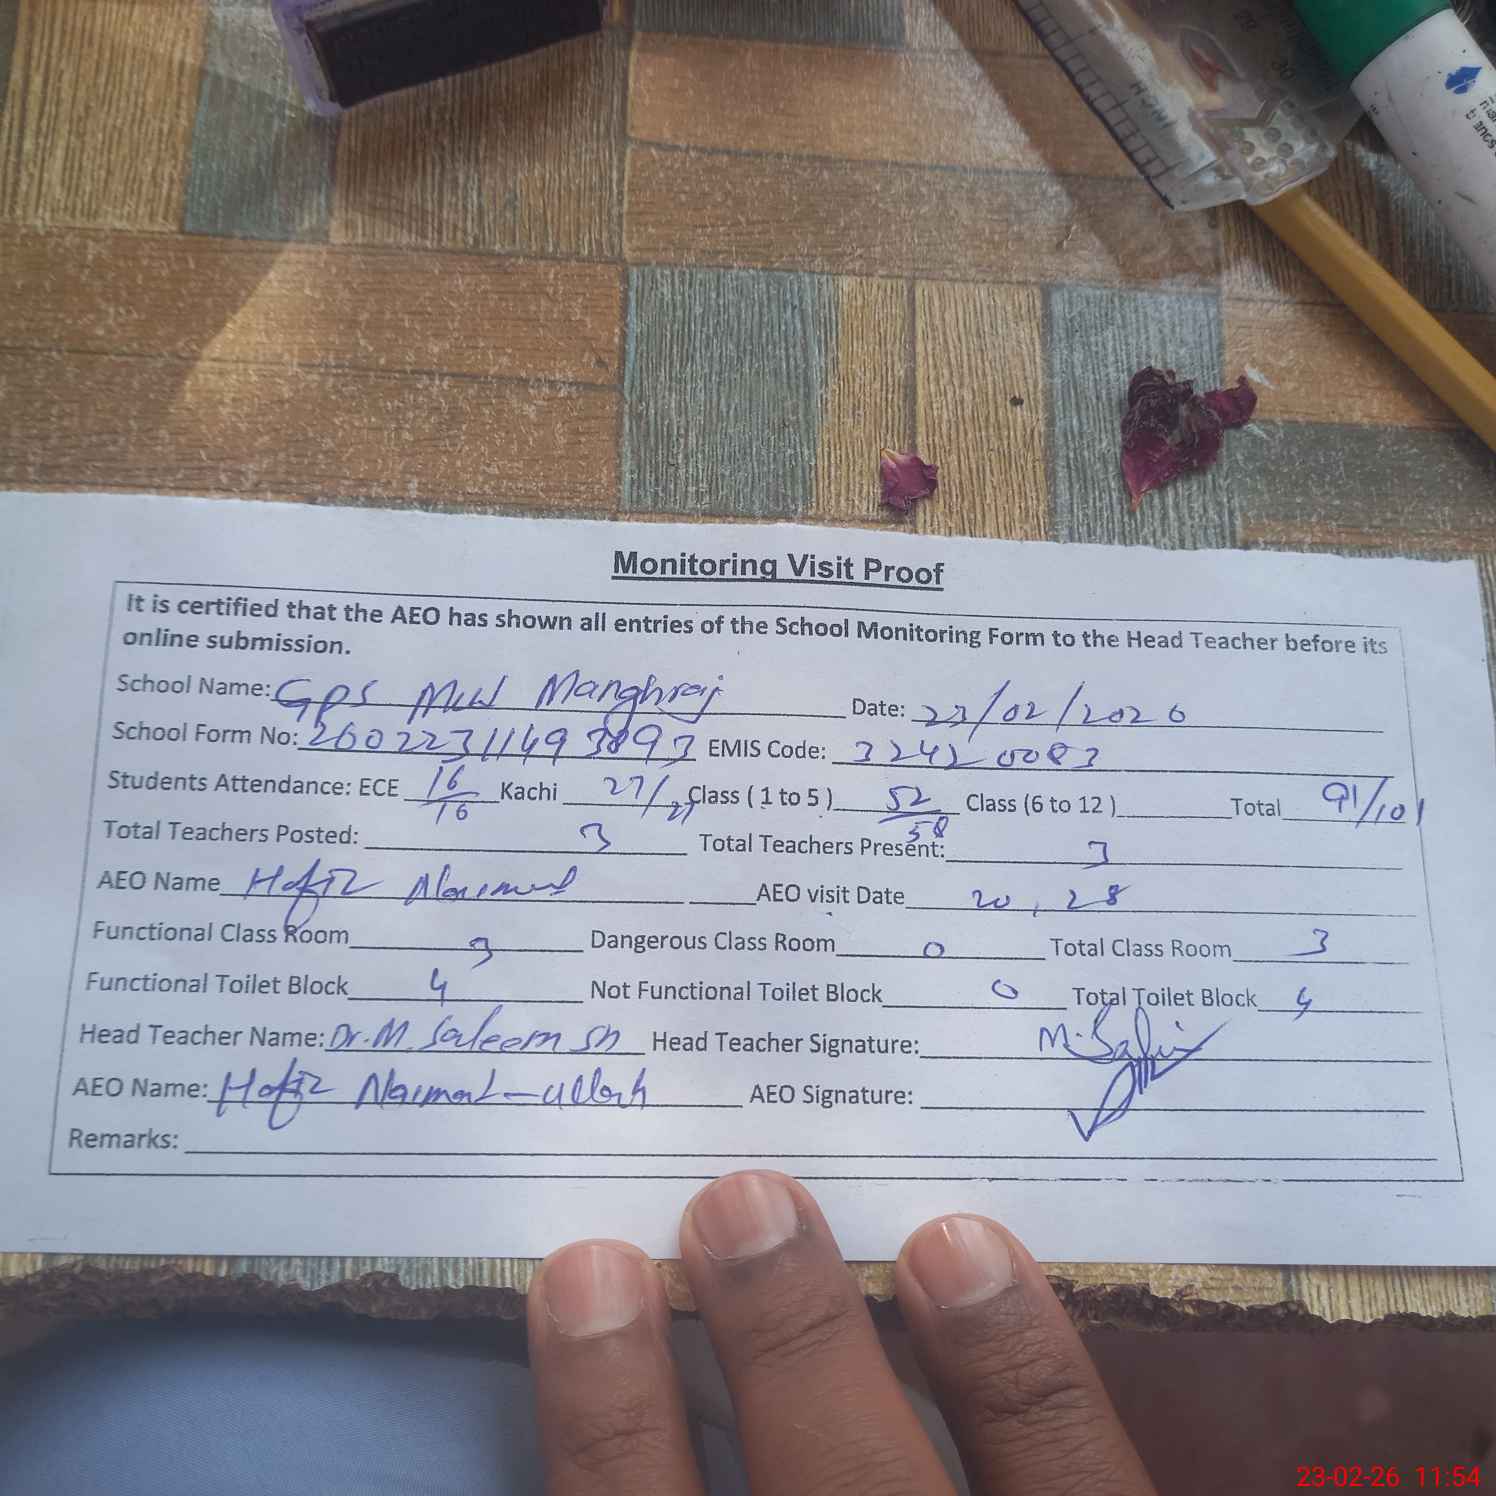 Monitoring Visit Proof
It is certified that the AEO has shown all entries of the School Monitoring Form to the Head Teacher before its
online submission.
School Name: GPS MW Manghraj Date: 23/02/2026
School Form No: 26022311493893 EMIS Code: 32420083
Students Attendance: ECE 16/16 Kachi 27/27 Class ( 1 to 5 ) 52/58 Class (6 to 12 ) Total 91/101
Total Teachers Posted: 3 Total Teachers Present: 3
AEO Name Hafiz AEO visit Date 20, 28
Functional Class Room 3 Dangerous Class Room 0 Total Class Room 3
Functional Toilet Block 4 Not Functional Toilet Block 0 Total Toilet Block 4
Head Teacher Name: Dr. M. Saleem Sh Head Teacher Signature: M.
AEO Name: Hafiz Naimat-ullah AEO Signature:
Remarks:
23-02-26 11:54